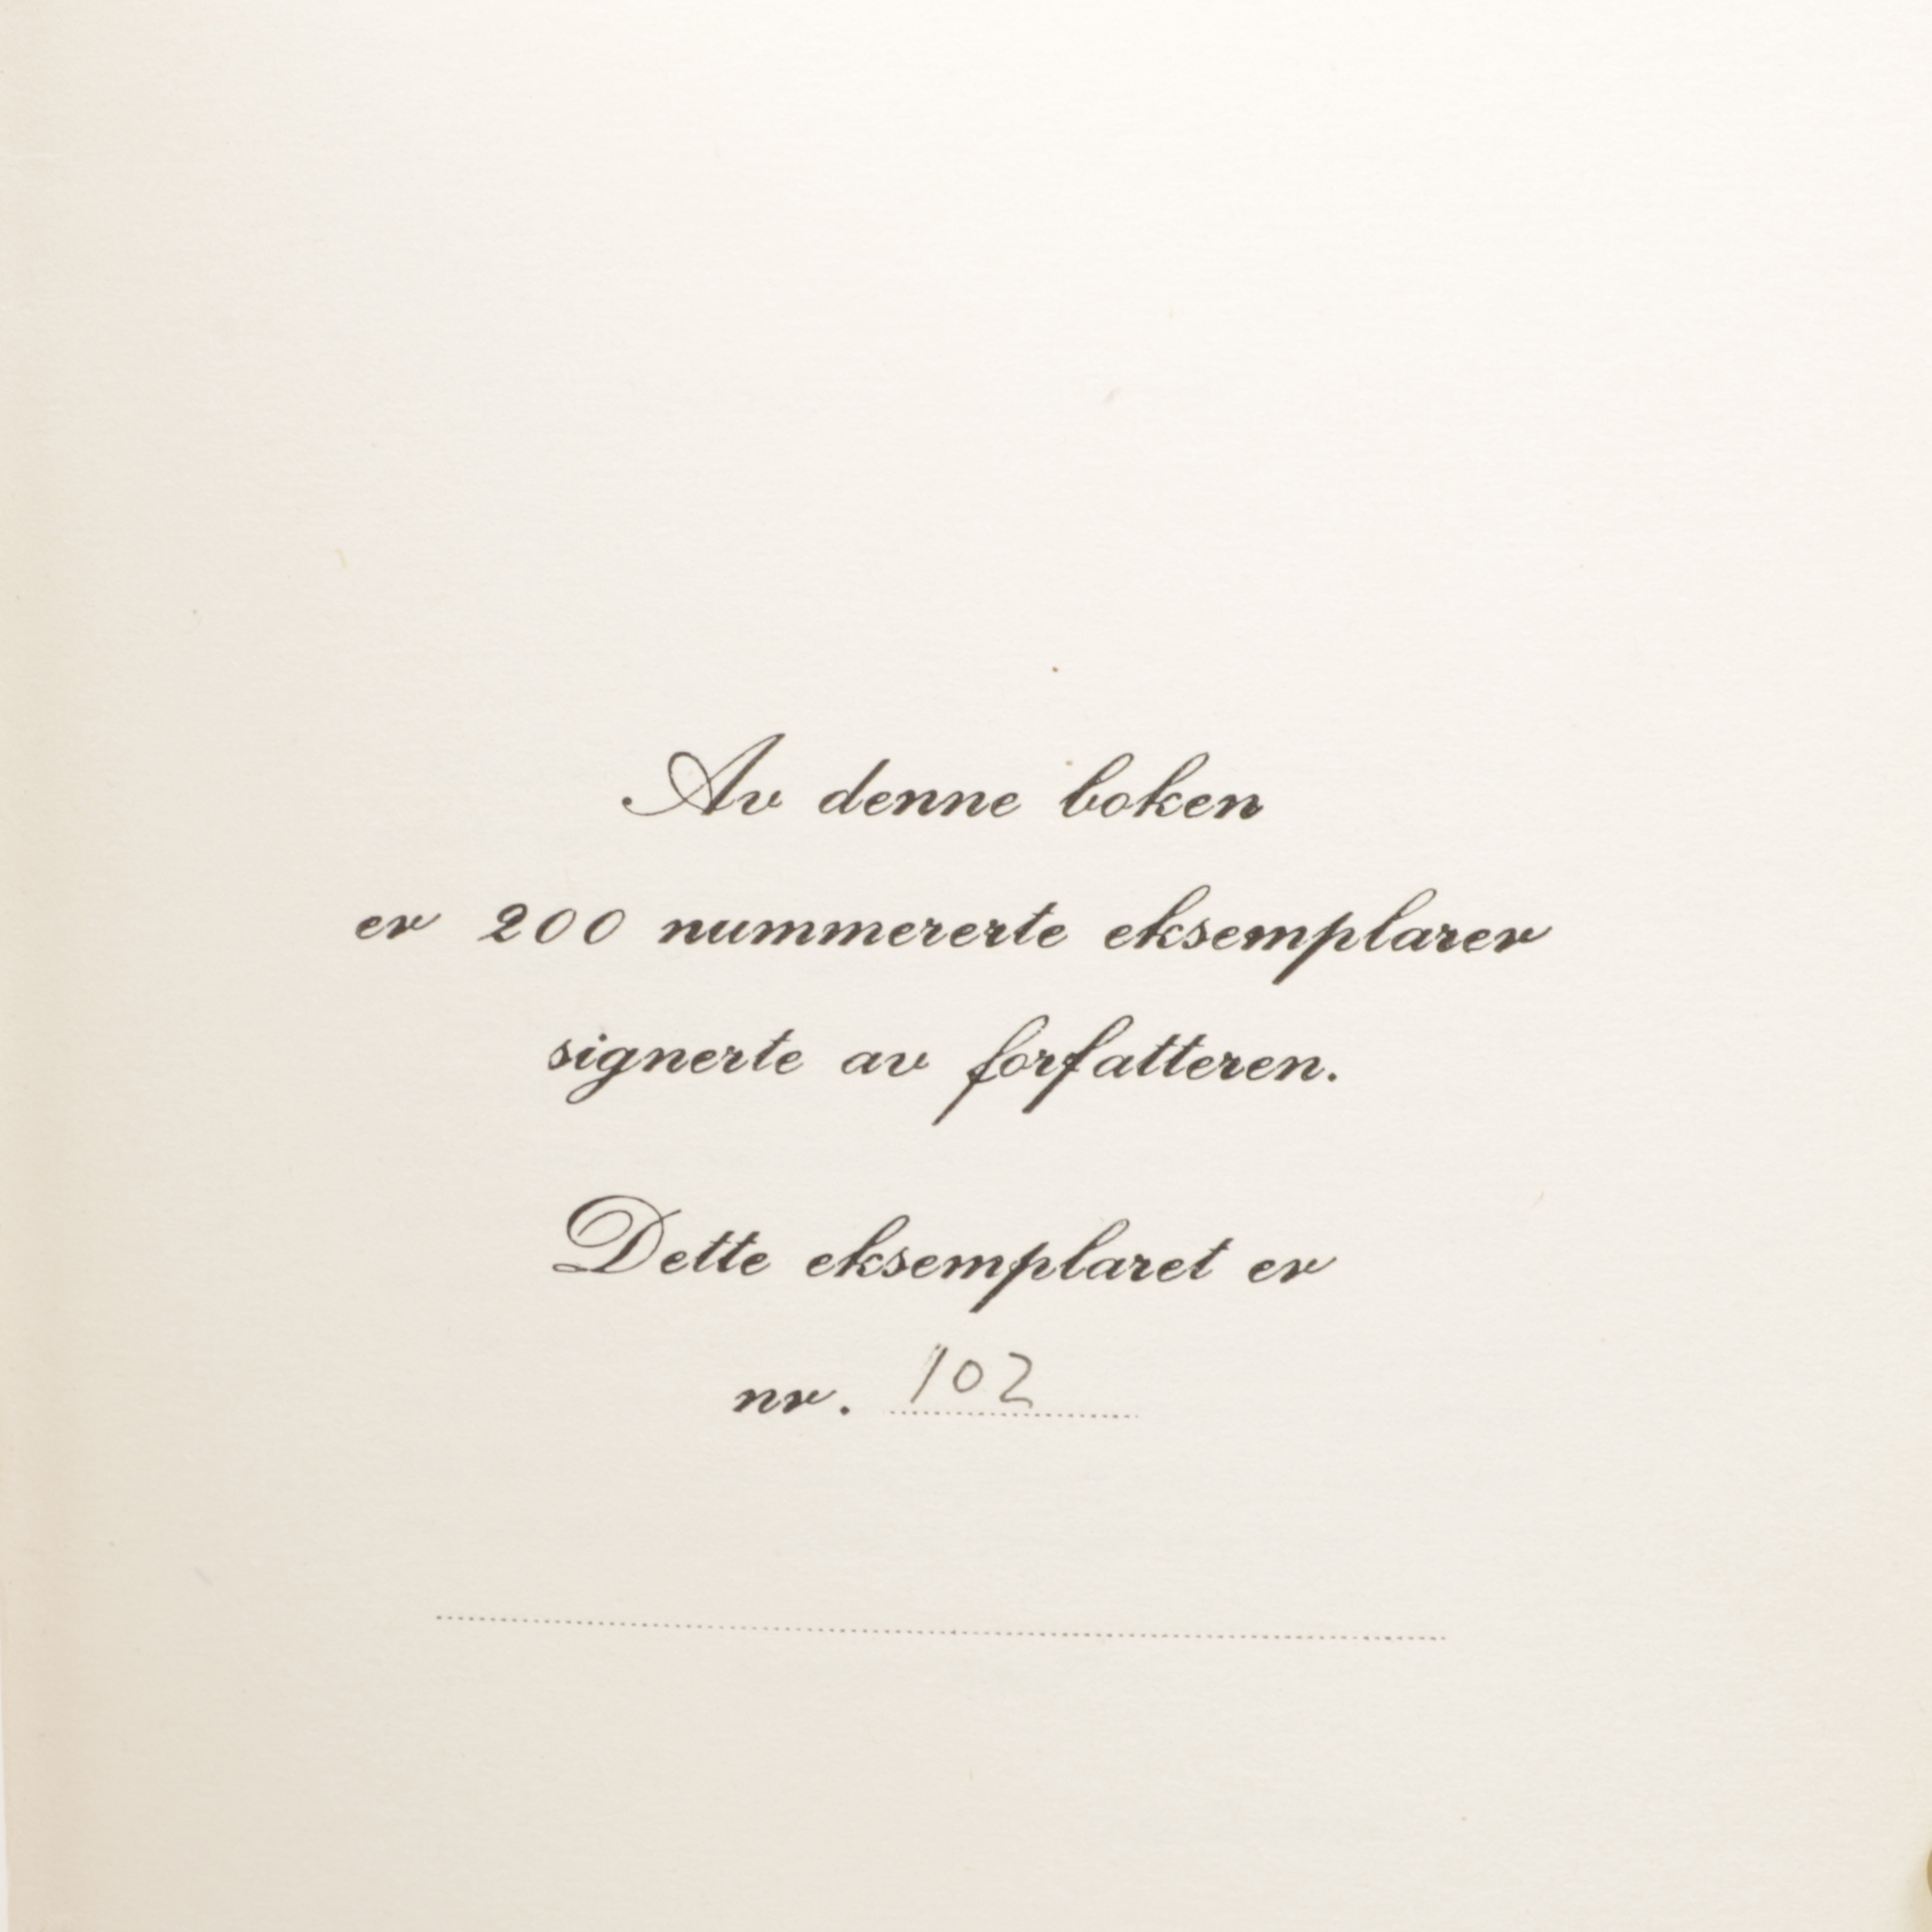 Av denne boken
er 200 nummererte eksemplarer
signerte av forfatteren.
Dette eksemplaret er
nr. 102